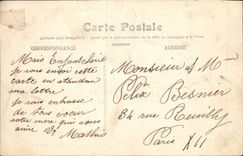 Carte Postale
CORRESPONDANCE
ADRESSE
Mais Enfant chérie
je vous envoi cette
carte en attendan
ma lettre
je vous embrasse
de tous coeur
votre mère qui vous
aime Ve Mathis
Monsieur et Mme
Félix Besnier
84 rue Reuilly
Paris XII